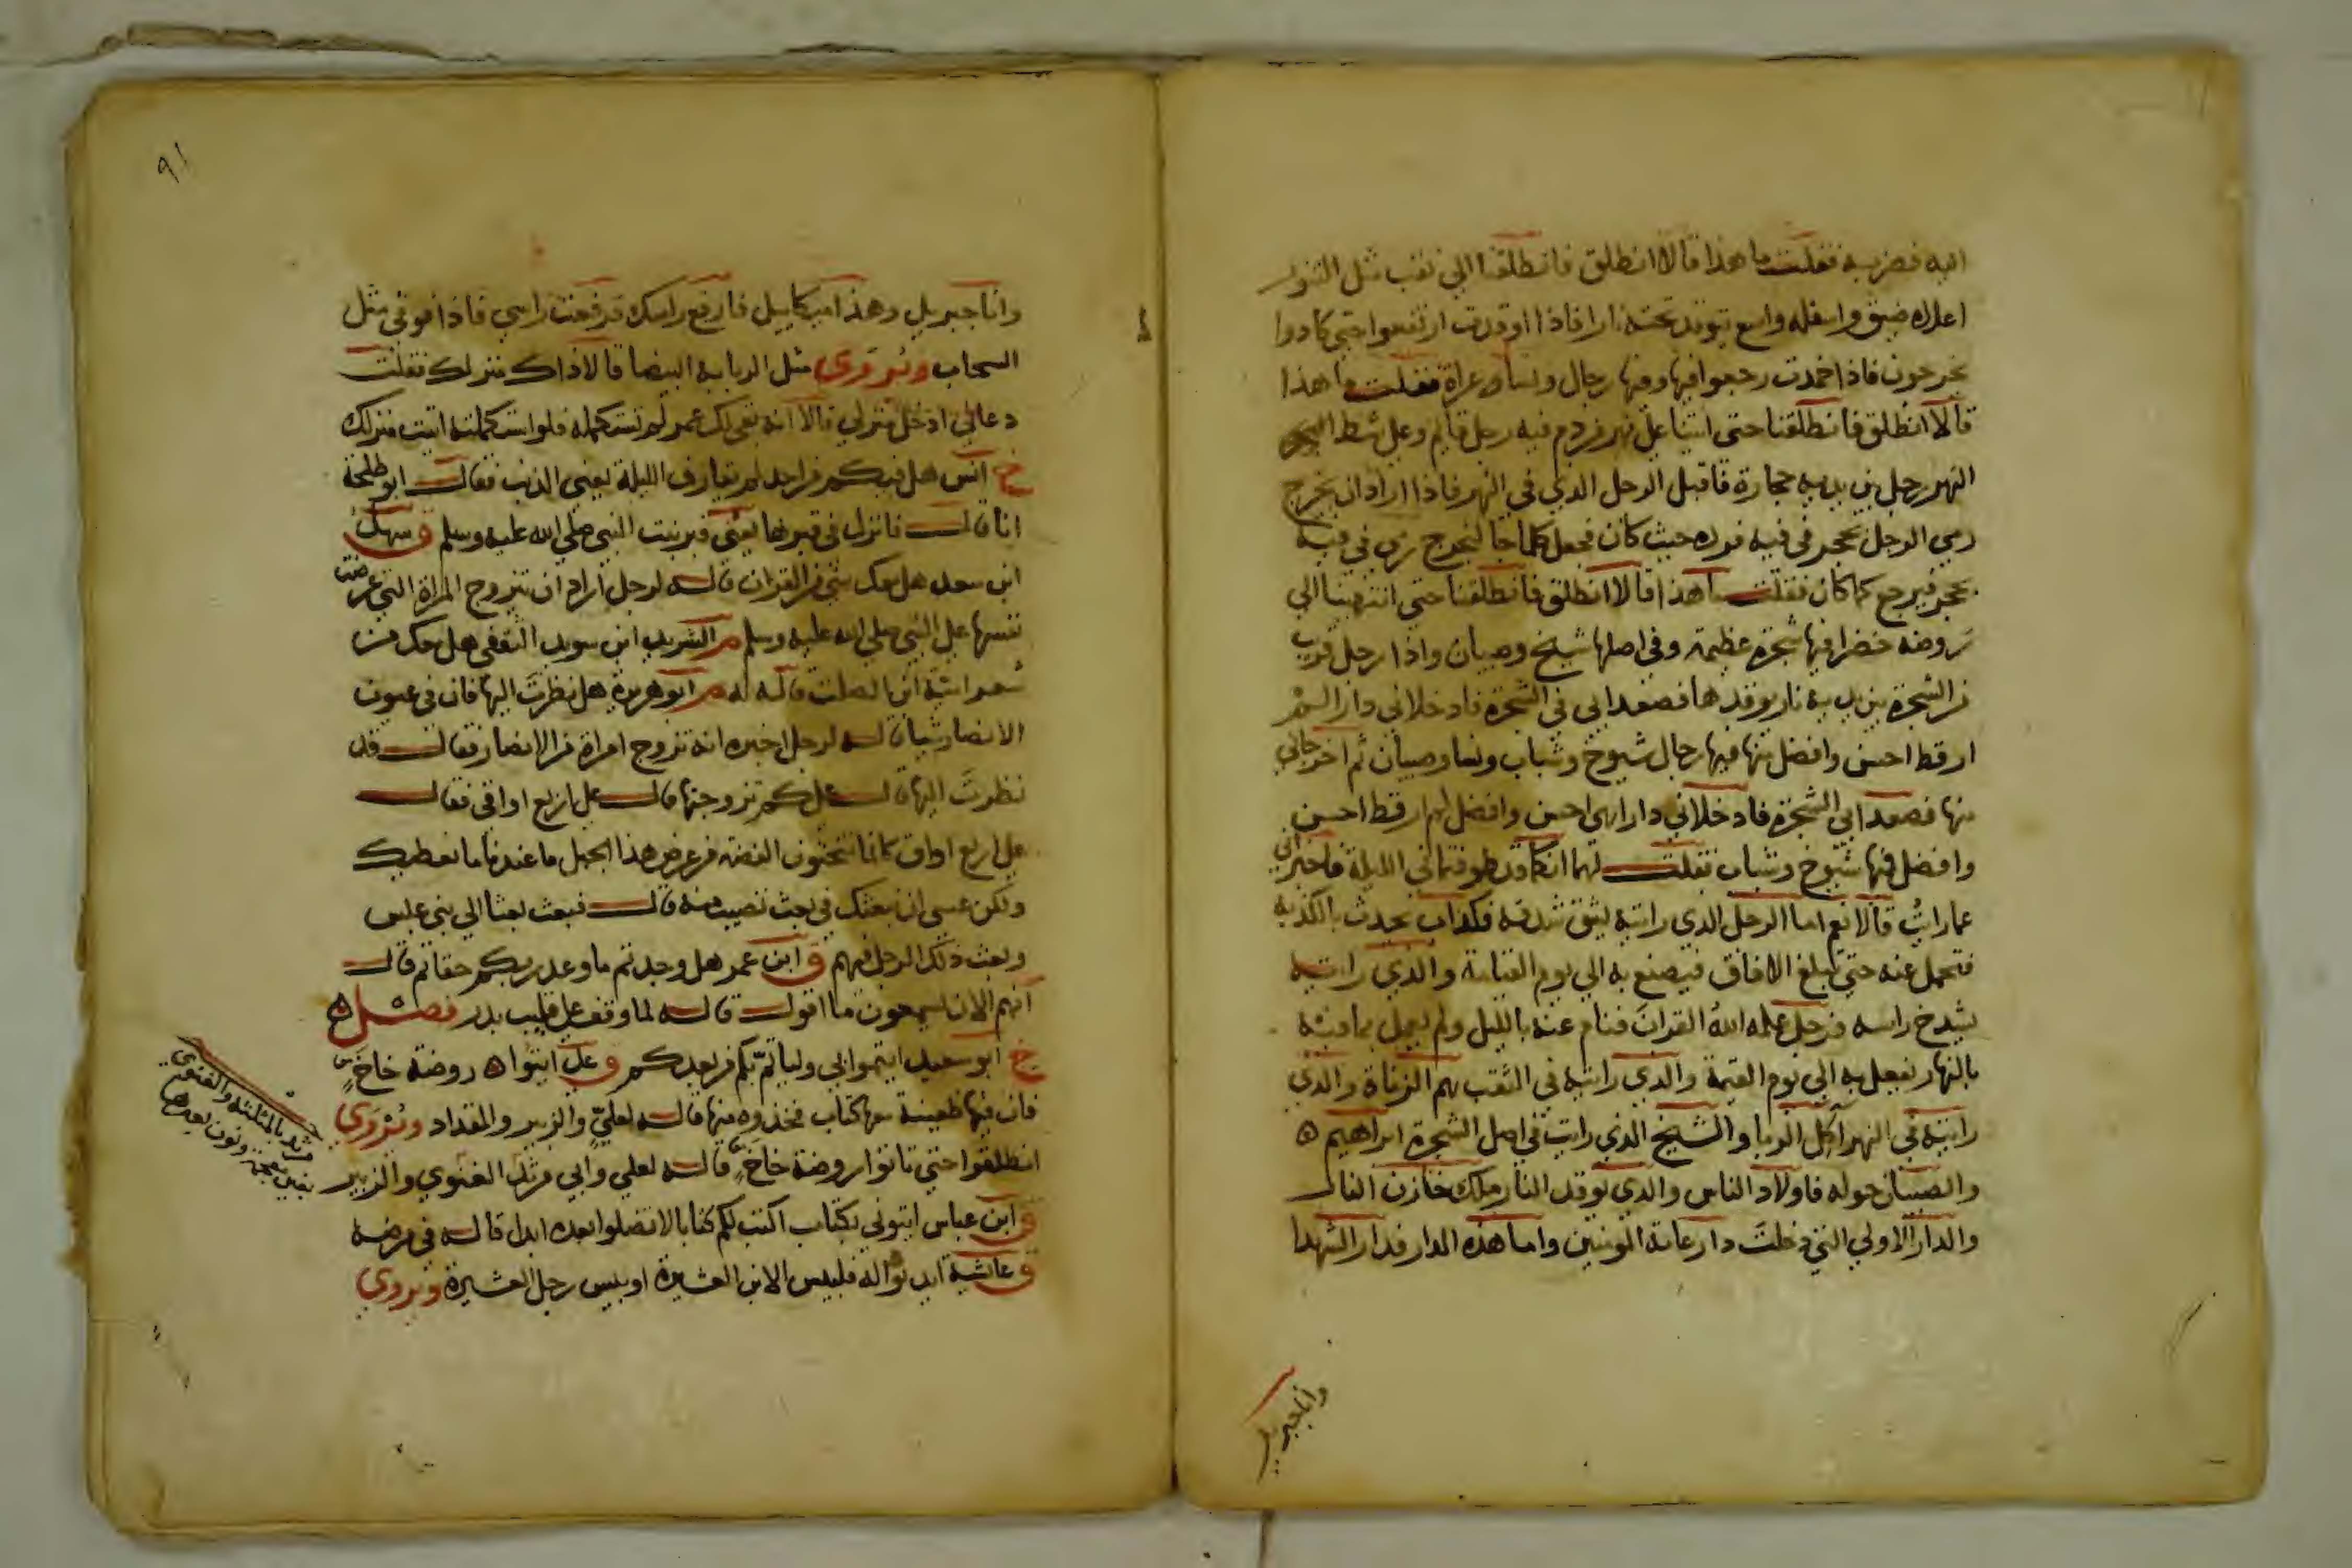 اليه فضربه فقلت ما هذا قالا انطلق فانطلقنا الي نقب مثل التنور
اعلاه ضيق واسفله واسع يتوقد تحته نارا فاذا اوقدت ارتفعوا حتي كادوا
يخرجون فاذا خمدت رجعوا فيها وفيها رجال ونسا عراة فقلت ما هذا
قالا انطلق فانطلقنا حتى اتينا علي نهر من دم فيه رجل قايم وعلي شط
النهر رجل بين يديه حجارة فاقبل الرجل الذي في النهر فاذا اراد ان يخرج
رمي الرجل بحجر في فيه فرده حيث كان فجعل كلما جا ليخرج رمي في فيه
بحجر فيرجع كما كان فقلت ما هذا قالا انطلق فانطلقنا حتي انتهينا الي
روضة خضرا فيها شجرة عظيمة وفي اصلها شيخ وصبيان واذا رجل قريب
من الشجرة بين يديه نار يوقدها فصعدا بي في الشجرة فادخلاني دارا لم
ار قط احسن وافضل منها فيها رجال شيوخ وشباب ونسا وصبيان ثم اخرجاني
منها فصعدا بي الشجرة فادخلاني دارا هي احسن وافضل لم ار قط احسن
وافضل فيها شيوخ وشباب فقلت لهما انكما قد طوفتماني الليلة فاخبراني
عما رايت قالا نعم اما الرجل الذي رايته يشق شدقه فكذاب يحدث بالكذبة
فتحمل عنه حتي تبلغ الافاق فيصنع به الي يوم القيامة والذي رايته
يشدخ راسه فرجل علمه الله القران فنام عنه بالليل ولم يعمل بما فيه
بالنهار يفعل به الي يوم القيمة والذي رايته في النقب هم الزناة والذي
رايته في النهر اكل الربا والشيخ الذي رايت في اصل الشجرة ابراهيم ه
والصبيان حوله فاولاد الناس والذي يوقد النار ملك خازن النار
والدار الاولي التي دخلت دار عامة المومنين واما هذه الدار فدار الشهدا
وانا جبريل
٩١
وانا جبريل وهذا ميكاييل فارفع راسك فرفعت راسي فاذا فوقي مثل
السحاب ويروى مثل الربابة البيضا قالا ذاك منزلك فقلت
دعاني ادخل منزلي قالا انه بقي لك عمر لم تستكمله فلو استكملته اتيت منزلك
خ انس هل فيكم من احد لم يقارف الليلة يعني الذنب فقال ابو طلحة
انا قال فانزل في قبرها يعني قبر بنت النبي صلي الله عليه وسلم ق سهل
ابن سعد هل معك شي من القران قاله لرجل اراد ان يتزوج المراة التي عرضت
نفسها علي النبي صلي الله عليه وسلم م الشريد ابن سويد الثقفي هل معك من
شعر امية ابن الصلت قاله له م ابو هريرة هل نظرت اليها فان في عيون
الانصار شيا قاله لرجل اخبره انه تزوج امراة من الانصار فقال قد
نظرت اليها قال علي كم تزوجتها قال علي اربع اواقي فقال
علي اربع اواق كانما تنحتون الفضة من عرض هذا الجبل ما عندنا ما نعطيك
ولكن عسي ان نبعثك في بعث تصيب منه قال فبعث بعثا الي بني عبس
وبعث ذلك الرجل فيهم ق ابن عمر هل وجدتم ما وعد ربكم حقا ثم قال
انهم الان يسمعون ما اقول قاله لما وقف علي قليب بدر فصل ه
خ ابو سعيد ايتموا بي وليأتم بكم من بعدكم ق علي ايتوا ه روضة خاخ
فان فيها ظعينة معها كتاب فخذوه منها قاله لعلي والزبير والمقداد ويروى
انطلقوا حتي تاتوا روضة خاخ قاله لعلي وابي مرثد الغنوي والزبير
ق ابن عباس ايتوني بكتاب اكتب لكم كتابا لا تضلوا بعده ابدا قاله في مرضه
ق عايشة ايذنوا له فلبيس الابن العشيرة او بيس رجل العشيرة ويروى
مرثد بالمثلثة والغنوي
بغين معجمة ونون بعدها